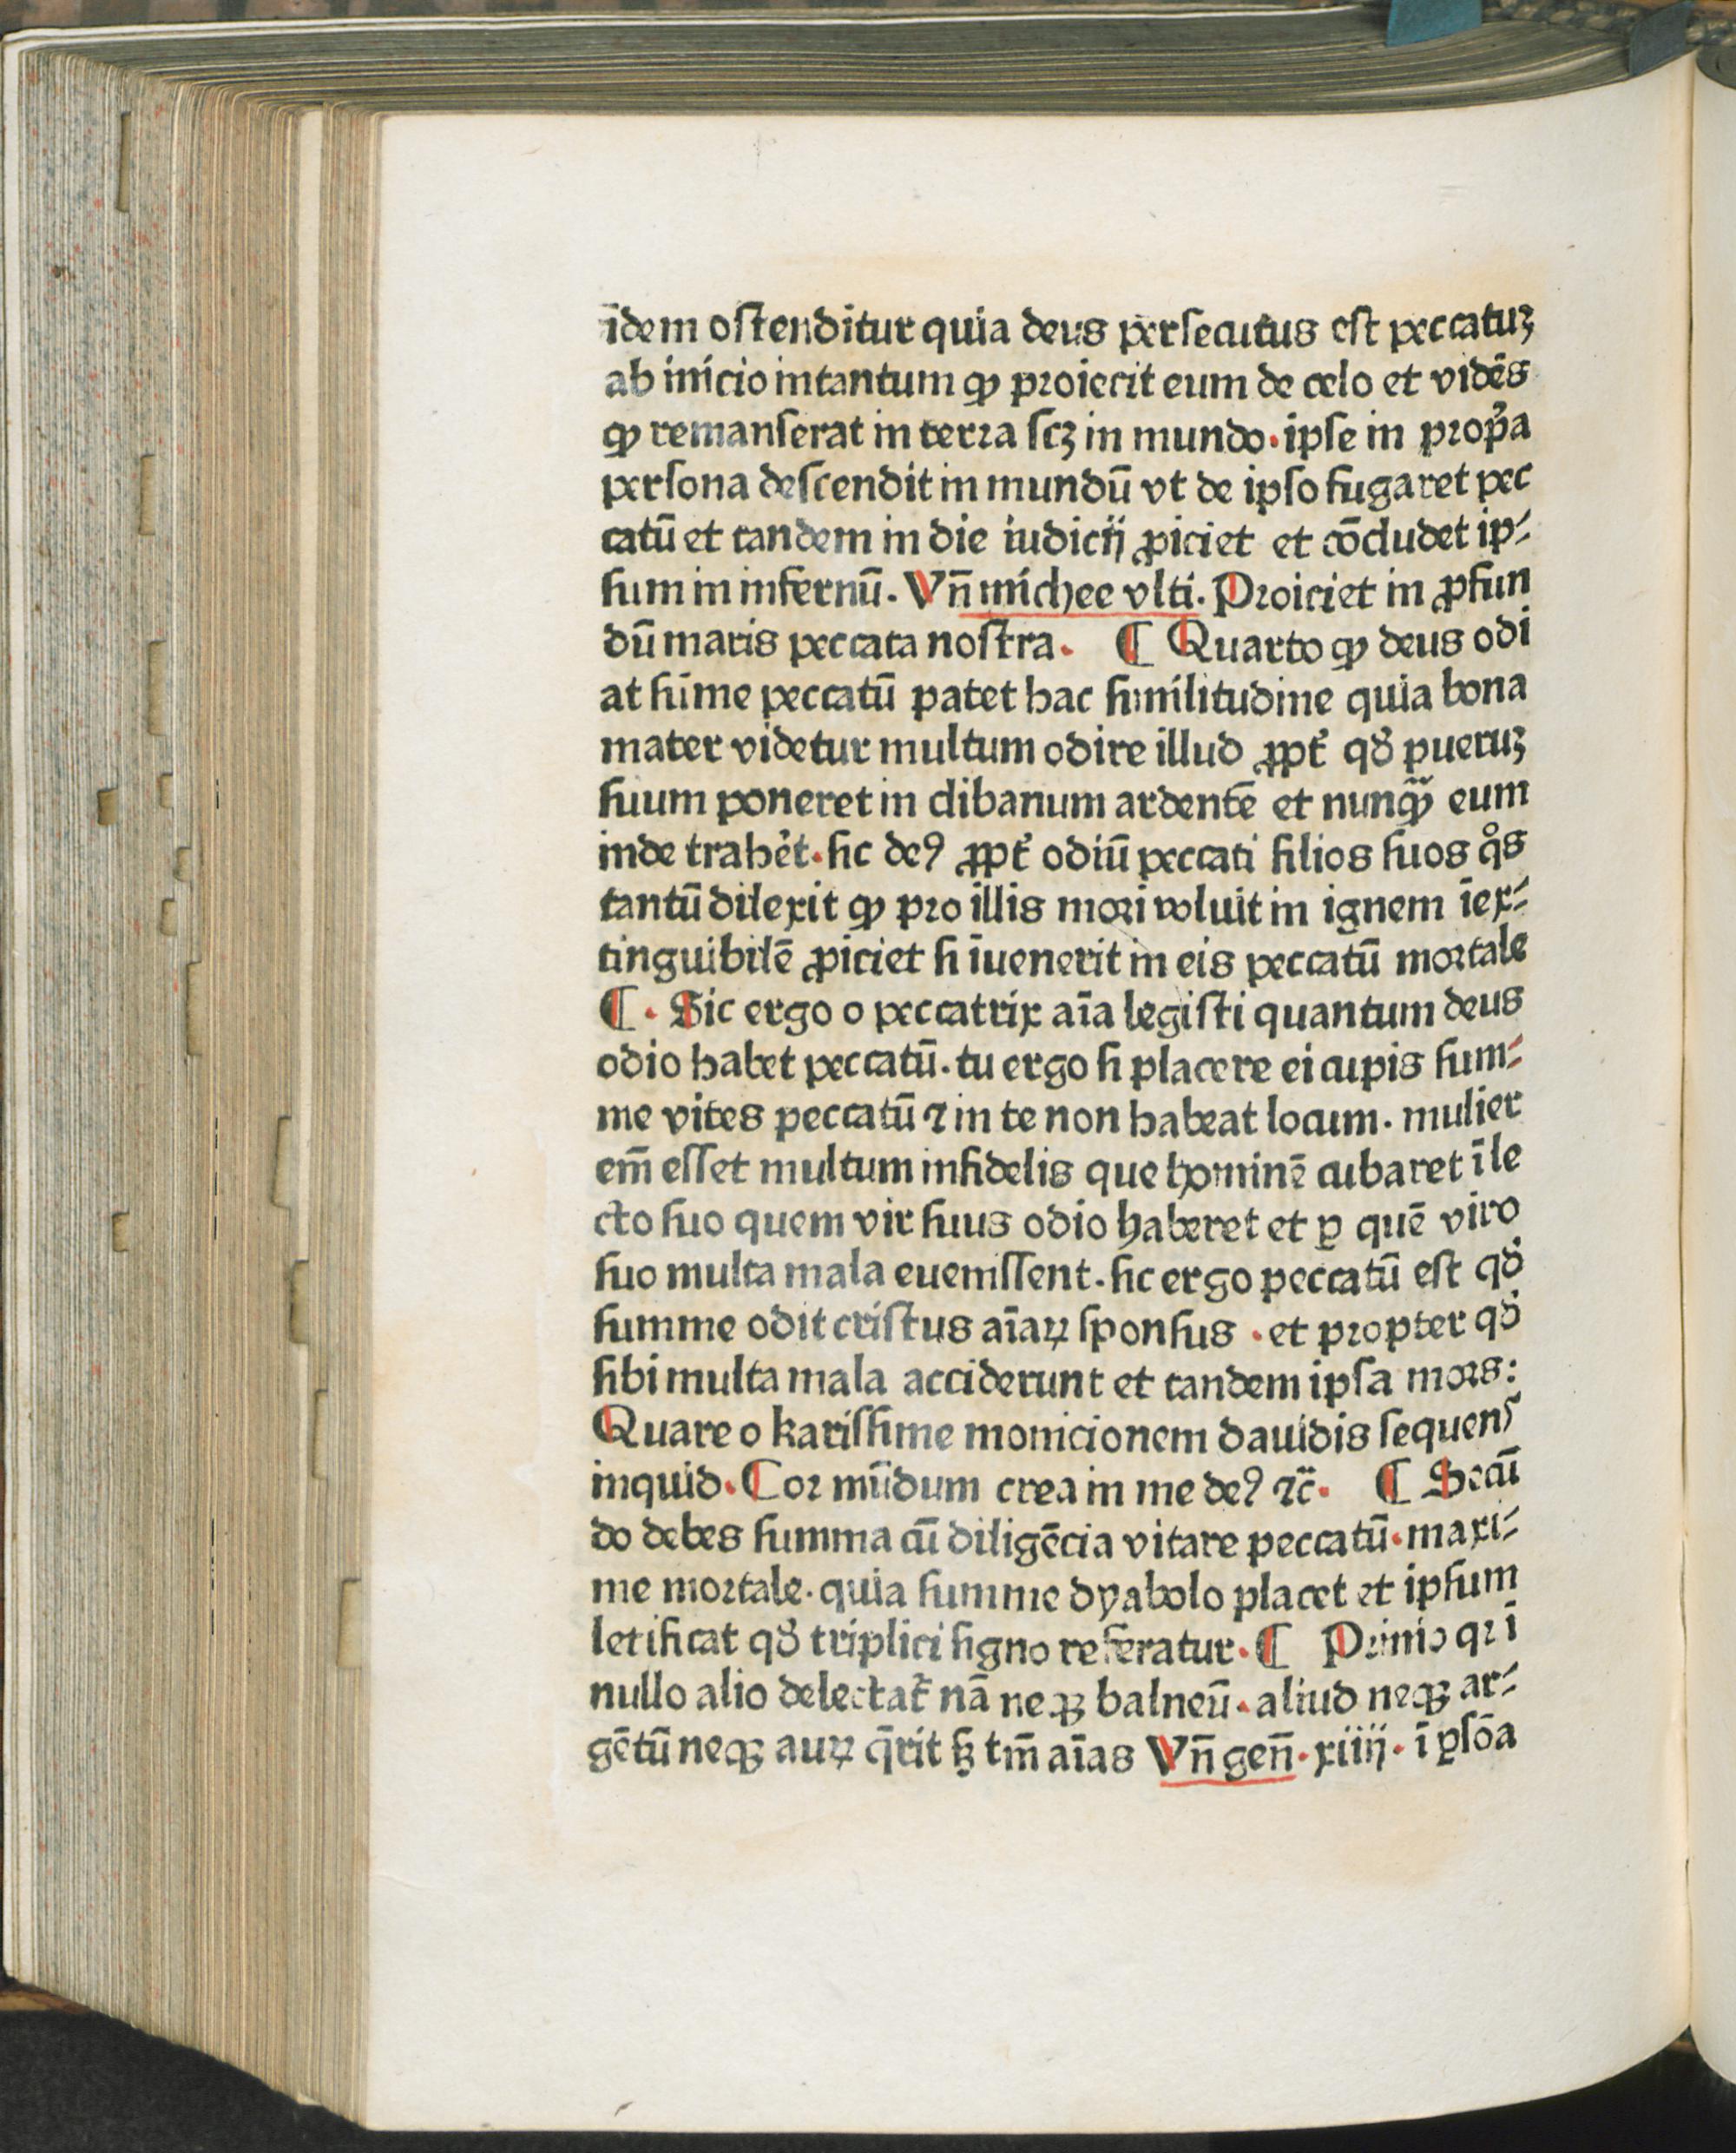 idem ostenditur quia deus persecutus est peccatuꝫ
ab inicio intantum ꝙ proiecit eum de celo et vidēs
ꝙ remanserat in terra scꝫ in mundo. ipse in prop̄a
persona descendit in mundū vt de ipso fugaret pec
catū et tandem in die iudicij ꝓiciet et cōcludet ip⸗
sum in infernū. Vn̄ michee vlti. Proiciet in ꝓfun
dū maris peccata nostra. ¶ Quarto ꝙ deus odi
at sūme peccatū patet hac similitudine quia bona
mater videtur multum odire illud ꝓpt̄ qd̄ pueruꝫ
suum poneret in clibanum ardentē et nunꝙ̄ eum
inde trahēt. sic deꝰ ꝓpt̄ odiū peccati filios suos qͦs
tantū dilexit ꝙ pro illis mori voluit in ignem īex⸗
tinguibilē ꝓiciet si īuenerit in eis peccatū mortale
¶. Sic ergo o peccatrix aīa legisti quantum deus
odio habet peccatū. tu ergo si placere ei cupis sum⸗
me vites peccatū ⁊ in te non habeat locum. mulier
em̄ esset multum infidelis que hominē cubaret ī le
cto suo quem vir suus odio haberet et ꝑ quē viro
suo multa mala euenissent. sic ergo peccatū est qd̄
summe odit cristus aīaꝝ sponsus . et propter qd̄
sibi multa mala acciderunt et tandem ipsa mors:
Quare o karissime monicionem dauidis sequens
inquid. Cor mūdum crea in me deꝰ ⁊c̄. ¶ Secū
do debes summa cū diligēcia vitare peccatū. maxi⸗
me mortale. quia summe dyabolo placet et ipsum
letificat qd̄ triplici signo referatur. ¶ Primo qꝛ ī
nullo alio delectat̄ nā neqꝫ balneū. aliud neqꝫ ar⸗
gētū neqꝫ auꝝ q̄rit sꝫ tm̄ aīas Vn̄ gen̄. xiiij. ī ꝑsōa